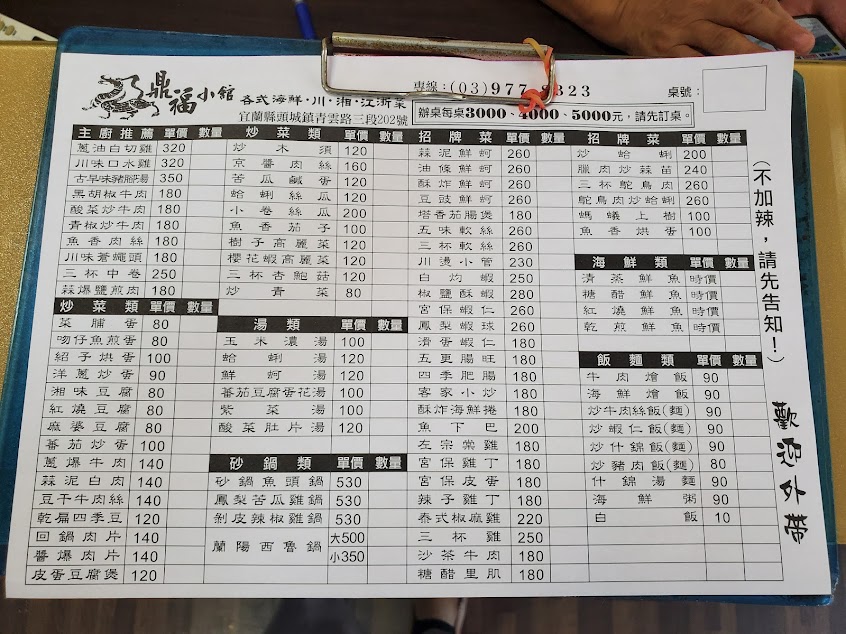 鼎福小館
各式海鮮·川·湘·江浙菜
宜蘭縣頭城鎮青雲路三段202號
專線:(03)977
323
桌號:
辦桌每桌3000、4000、5000元,請先訂桌。
主廚推薦 單價 數量
蔥油白切雞 320
川味口水雞 320
古早味豬腳湯 350
黑胡椒牛肉 180
酸菜炒牛肉 180
青椒炒牛肉 180
魚香肉絲 180
川味蒼蠅頭 180
三杯中卷 250
蒜爆鹽煎肉 180
炒菜類 單價 數量
菜脯蛋 80
吻仔魚煎蛋 80
紹子烘蛋 100
洋蔥炒蛋 90
湘味豆腐 80
紅燒豆腐 80
麻婆豆腐 80
番茄炒蛋 100
蔥爆牛肉 140
蒜泥白肉 140
豆干牛肉絲 140
乾扁四季豆 120
回鍋肉片 140
醬爆肉片 140
皮蛋豆腐煲 120
炒菜類 單價 數量
炒木須 120
京醬肉絲 160
苦瓜鹹蛋 120
蛤蜊絲瓜 120
小卷絲瓜 200
魚香茄子 100
樹子高麗菜 120
櫻花蝦高麗菜 120
三杯杏鮑菇 120
炒青菜 80
湯類 單價 數量
玉米濃湯 100
蛤蜊湯 120
鮮蚵湯 120
番茄豆腐蛋花湯 100
紫菜湯 100
酸菜肚片湯 120
砂鍋類 單價 數量
砂鍋魚頭鍋 530
鳳梨苦瓜雞鍋 530
剝皮辣椒雞鍋 530
蘭陽西魯鍋 大500
小350
招牌菜 單價 數量
蒜泥鮮蚵 260
油條鮮蚵 260
酥炸鮮蚵 260
豆豉鮮蚵 260
塔香茄腸煲 180
五味軟絲 260
三杯軟絲 260
川燙小管 230
白灼蝦 250
椒鹽酥蝦 280
宮保蝦仁 260
鳳梨蝦球 260
滑蛋蝦仁 180
五更腸旺 180
四季肥腸 180
客家小炒 180
酥炸海鮮捲 180
魚下巴 200
左宗棠雞 180
宮保雞丁 180
宮保皮蛋 180
辣子雞丁 180
泰式椒麻雞 220
三杯雞 250
沙茶牛肉 180
糖醋里肌 180
招牌菜 單價 數量
炒蛤蜊 200
臘肉炒蒜苗 240
三杯鴕鳥肉 260
鴕鳥肉炒蛤蜊 260
螞蟻上樹 100
魚香烘蛋 100
海鮮類 單價 數量
清蒸鮮魚 時價
糖醋鮮魚 時價
紅燒鮮魚 時價
乾煎鮮魚 時價
飯麵類 單價 數量
牛肉燴飯 90
海鮮燴飯 90
炒牛肉絲飯(麵) 90
炒蝦仁飯(麵) 90
炒什錦飯(麵) 90
炒豬肉飯(麵) 80
什錦湯麵 90
海鮮粥 90
白飯 10
(不加辣,請先告知!)
歡迎外帶